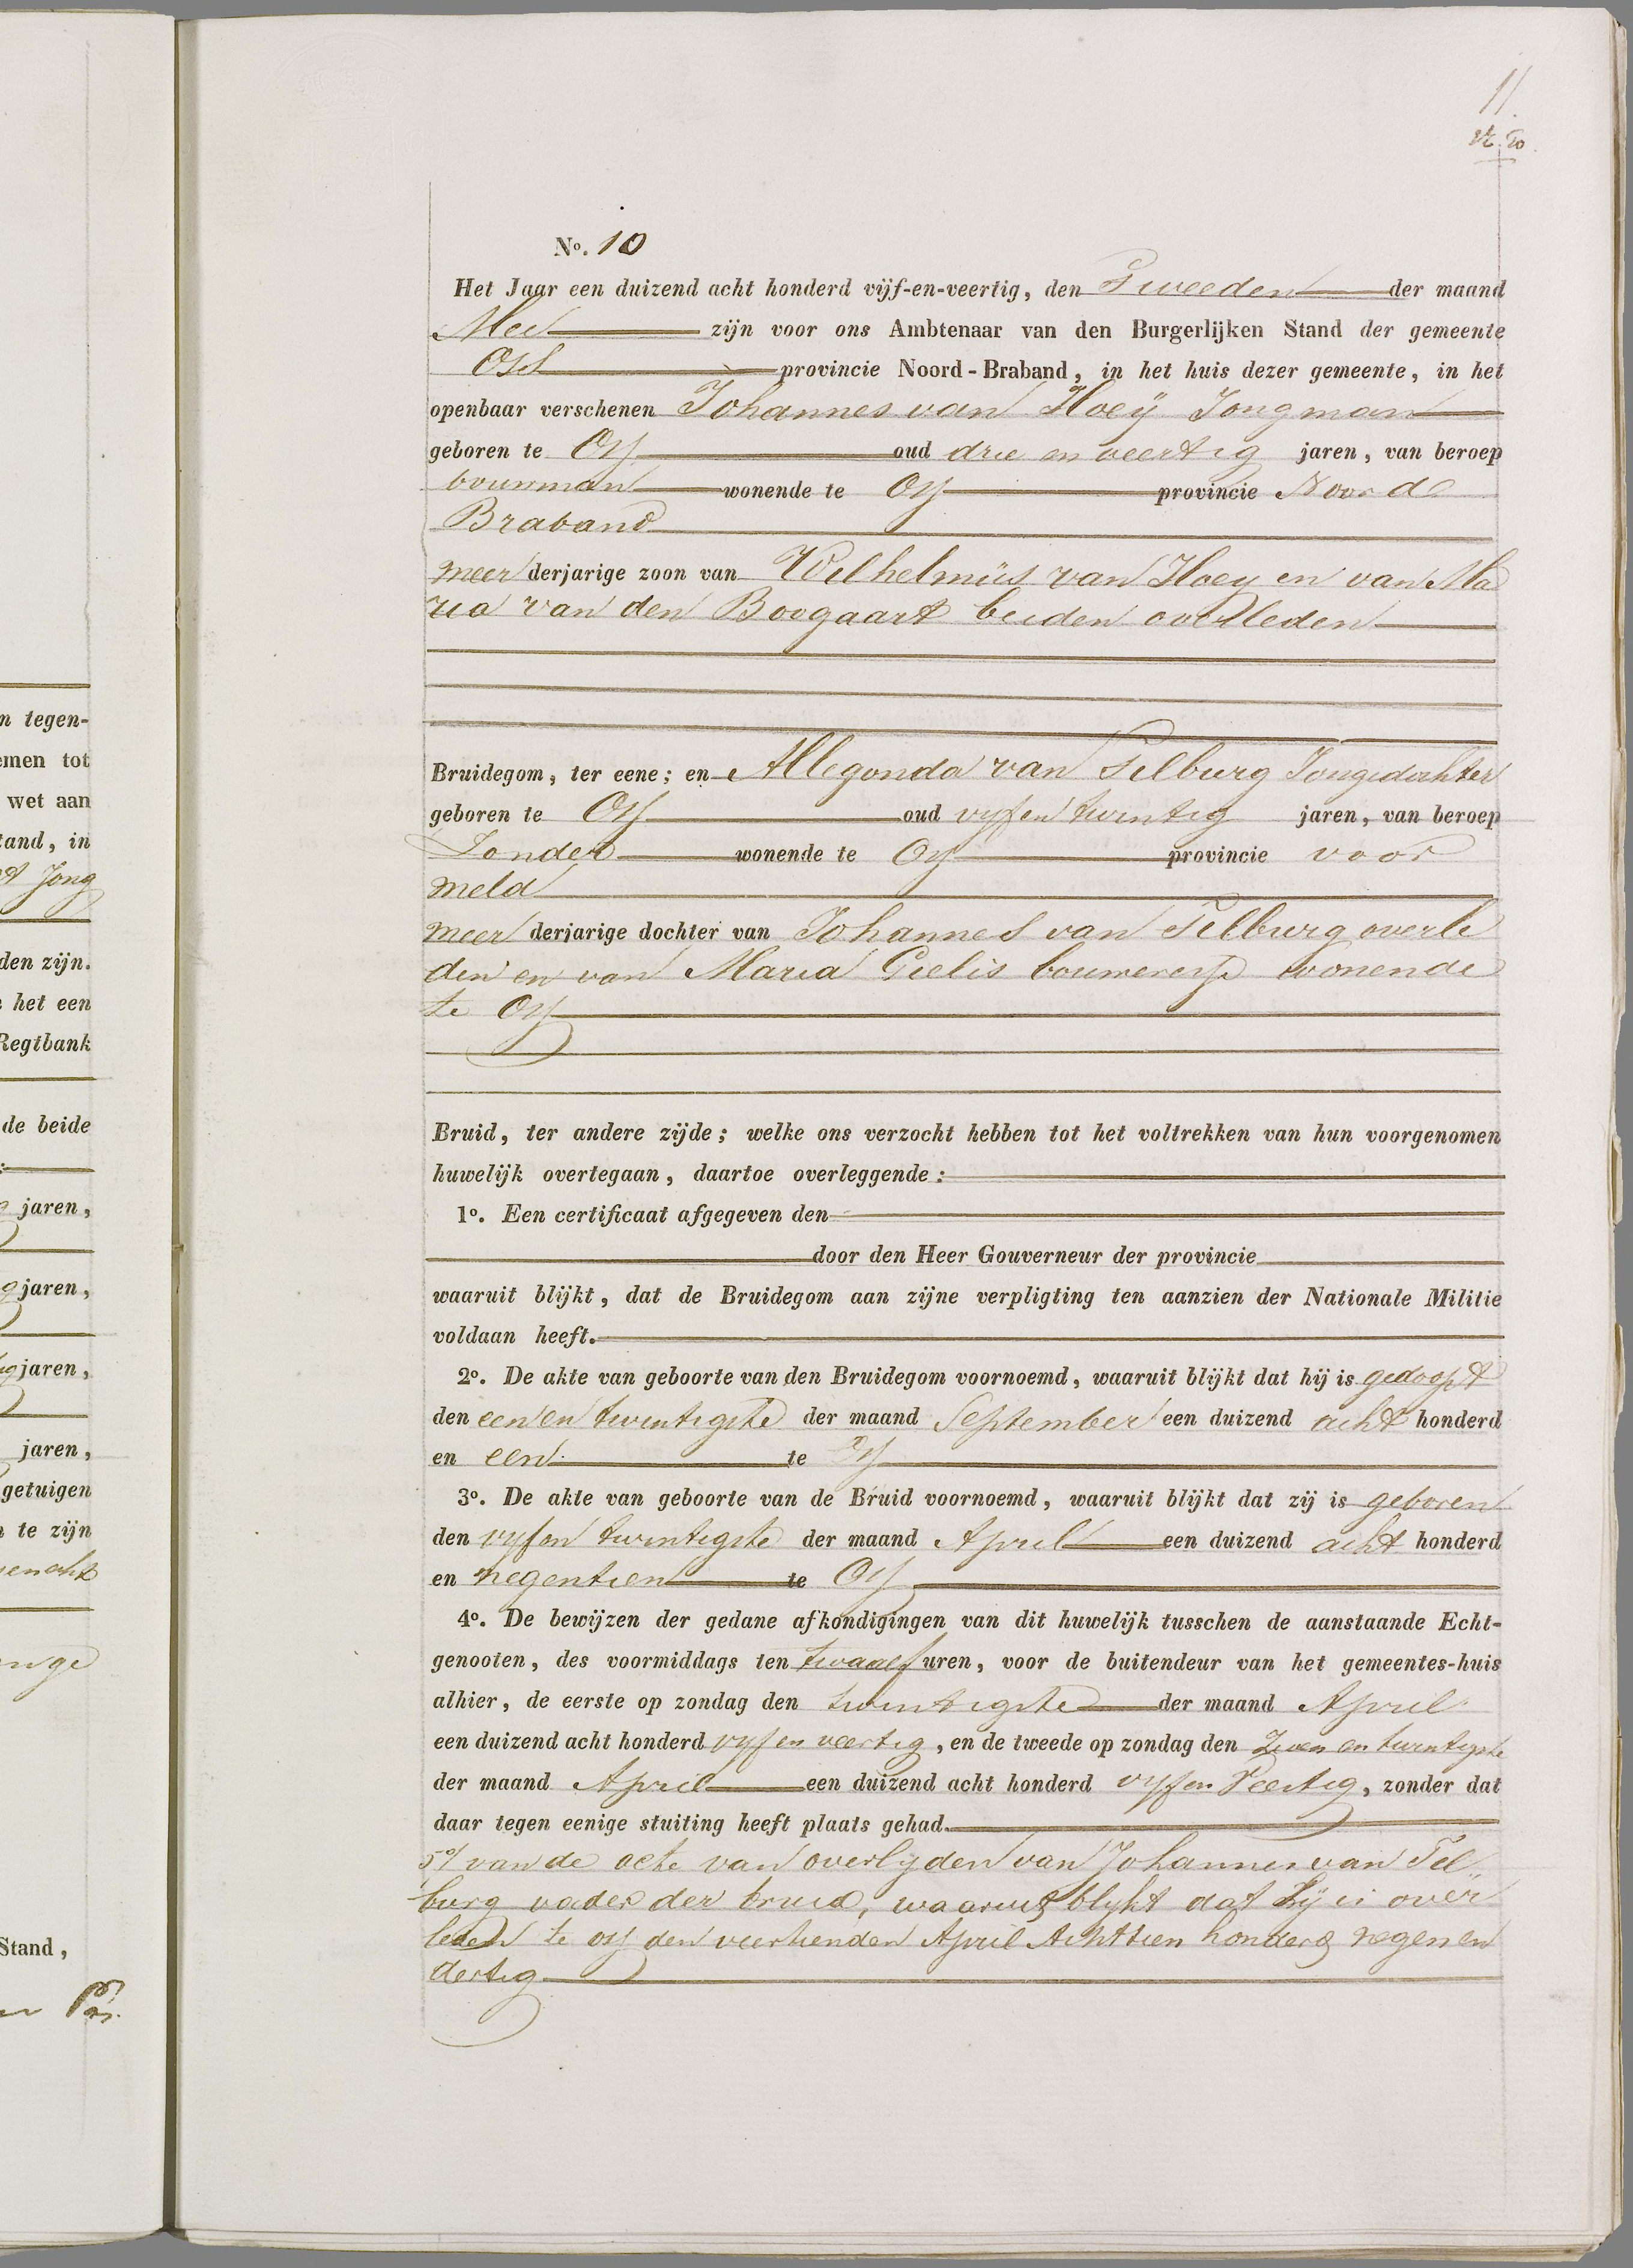 11.
No. 10
Het Jaar een duizend acht honderd vijf-en-veertig, den Tweeden der maand
Mei zijn voor ons Ambtenaar van den Burgerlijken Stand der gemeente
Oss provincie Noord-Braband, in het huis dezer gemeente, in het
openbaar verschenen Johannes van Hoeij Jongman
geboren te Oss oud drie en veertig jaren, van beroep
bouwman wonende te Oss provincie Noorde
Braband
meerderjarige zoon van Wilhelmus van Hoey en van Ma
ria van den Boogaart beiden overleden
Bruidegom, ter eene; en Allegonda van Tilburg Jongedochter
geboren te Oss oud vyf en twintig jaren, van beroep
Zonder wonende te Oss provincie voor
meld
meerderjarige dochter van Johannes van Tilburg overle
den en van Maria Gielis bouwersse wonende
te Oss
Bruid, ter andere zijde; welke ons verzocht hebben tot het voltrekken van hun voorgenomen
huwelijk overtegaan, daartoe overleggende:
1o. Een certificaat afgegeven den
door den Heer Gouverneur der provincie
waaruit blijkt, dat de Bruidegom aan zijne verpligting ten aanzien der Nationale Militie
voldaan heeft.
2o. De akte van geboorte van den Bruidegom voornoemd, waaruit blijkt dat hij is gedoopt
den een en twintigste der maand September een duizend acht honderd
en een te Oss
3o. De akte van geboorte van de Bruid voornoemd, waaruit blijkt dat zij is geboren
den vyf en twintigste der maand April een duizend acht honderd
en negentien te Oss
4o. De bewijzen der gedane afkondigingen van dit huwelijk tusschen de aanstaande Echt-
genooten, des voormiddags ten twaalf uren, voor de buitendeur van het gemeentes-huis
alhier, de eerste op zondag den twintigste der maand April
een duizend acht honderd vyf en veertig, en de tweede op zondag den Zeven en twintigste
der maand April een duizend acht honderd vyf en Veertig, zonder dat
daar tegen eenige stuiting heeft plaats gehad.
5o/ van de acte van overlyden van Johannes van Til-
burg vader der bruid, waaruit blykt dat hy is over
leden te oss den veertienden April Achttien honderd negen en
dertig
n tegen-
emen tot
wet aan
tand, in
Jong
den zijn.
het een
Regtbank
de beide
jaren,
jaren,
jaren,
jaren,
getuigen
te zijn
Stand,